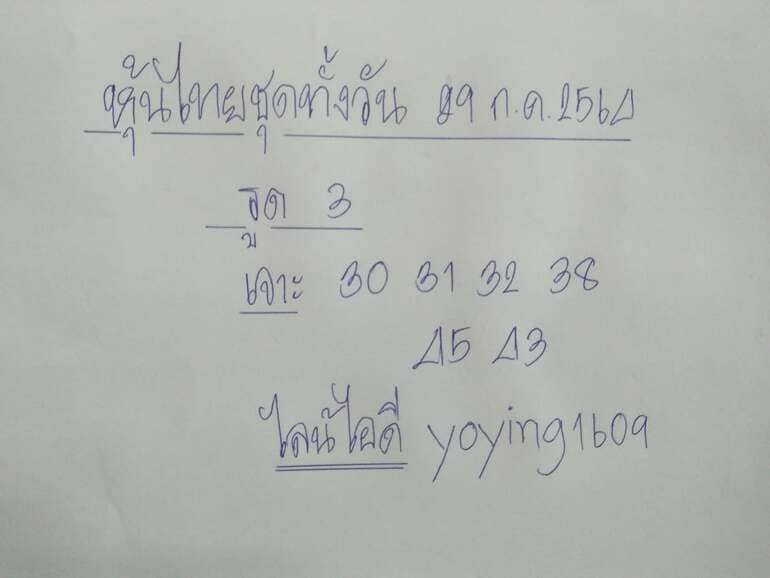 หุ้นไทยชุดทั้งวัน 29 ก.ค. 2564
รูด 3
เจาะ 30 31 32 38
45 43
ไลน์ไอดี yoying1609